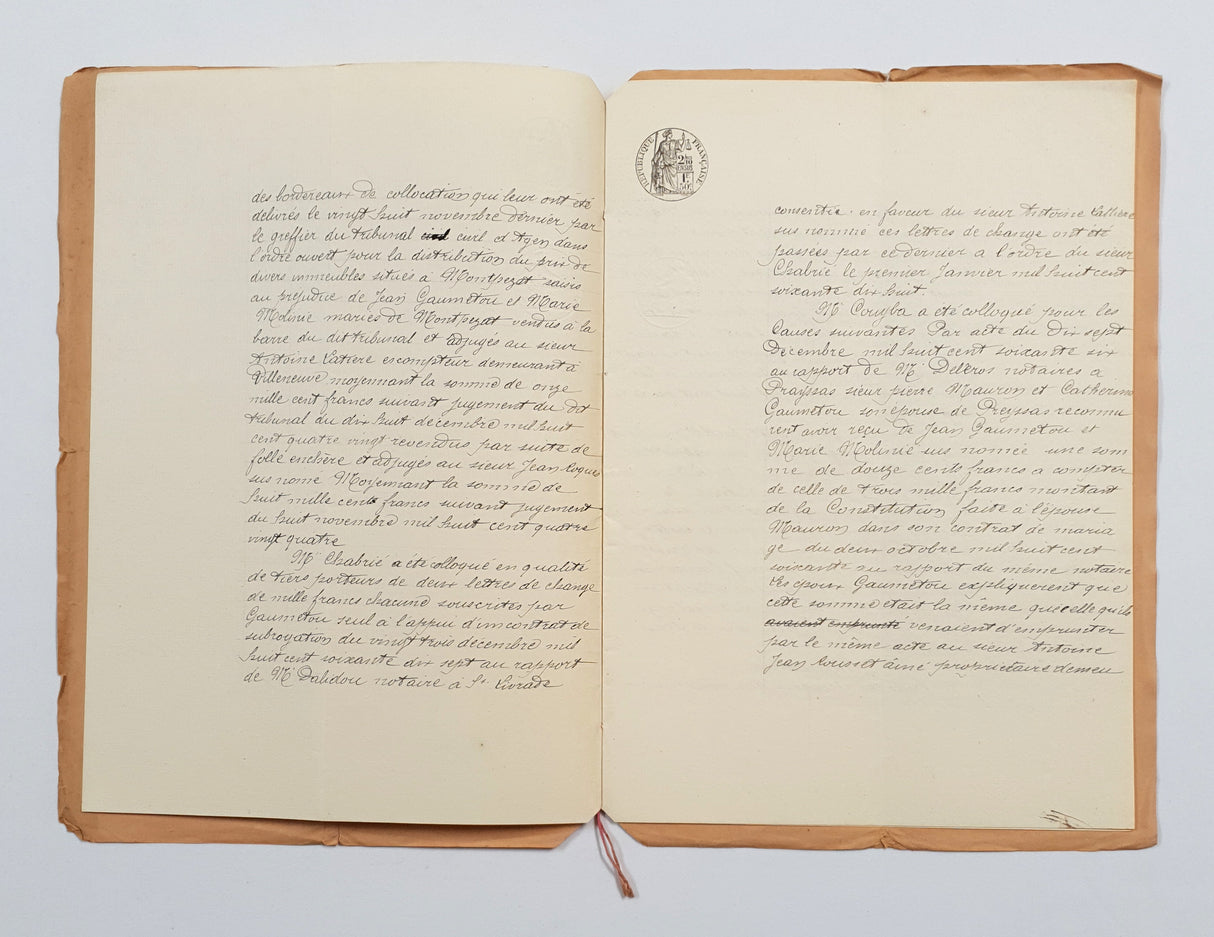 des bordereaux de collocation qui leur ont été
délivrés le vingt huit novembre dernier par
le greffier du tribunal civil civil d'Agen dans
l'ordre ouvert pour la distribution du prix de
divers immeubles situés à Montpezat saisis
au préjudice de Jean Gaumétou et Marie
Molinié mariés de Montpezat vendus à la
barre du dit tribunal et adjugés au sieur
Antoine escompteur demeurant à
Villeneuve moyennant la somme de onze
mille cent francs suivant jugement du dit
tribunal du dix huit décembre mil huit
cent quatre vingt revendus par suite de
folle enchère et adjugés au sieur Jean Roques
sus nomé Moyennant la somme de
huit mille cents francs suivant jugement
du huit novembre mil huit cent quatre
vingt quatre
Mr Chabrié a été colloqué en qualité
de tiers porteurs de deux lettres de change
de mille francs chacune souscrites par
Gaumétou seul à l'appui d'un contrat de
subrogation du vingt trois décembre mil
huit cent soixante dix sept au rapport
de Me Dabidou notaire à Ste Livrade
REPUBLIQUE FRANÇAISE
2/10
EN SUS
1F
50c
consentie en faveur du sieur Antoine
sus nommé ces lettres de change ont été
passées par ce dernier a l'ordre du sieur
Chabrié le premier Janvier mil huit cent
soixante dix huit.
Mr Couyba a été colloqué pour les
Causes suivantes Par acte du Dix sept
Décembre mil huit cent soixante six
au rapport de Me notaires a
Prayssas sieur pierre Mauron et Catherine
Gaumétou son épouse de Preyssas reconnu
rent avoir reçu de Jean Gaumétou et
Marie Molinié sus nomée une som
me de douze cents francs a compter
de celle de trois mille francs montant
de la Constitution faite à l'épouse
Mauron dans son contrat de maria
ge du deux octobre mil huit cent
soixante au rapport du même notaire
Les époux Gaumétou expliquerent que
cette somme était la même que celle qu'ils
avaient emprunté venaient d'emprunter
par le même acte au sieur Antoine
Jean Rousset ainé propriétaire demeu